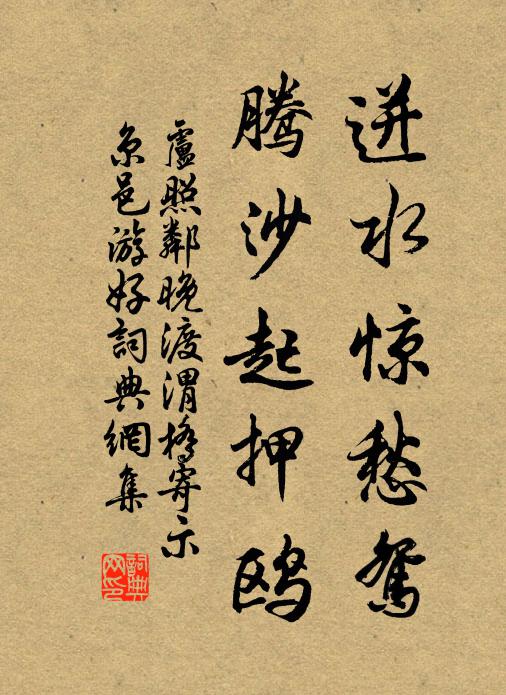 迸水惊愁鸳
腾沙起押鸥
盧照鄰晚渡渭橋寄示
京邑游好詞典網集
詞典
网印